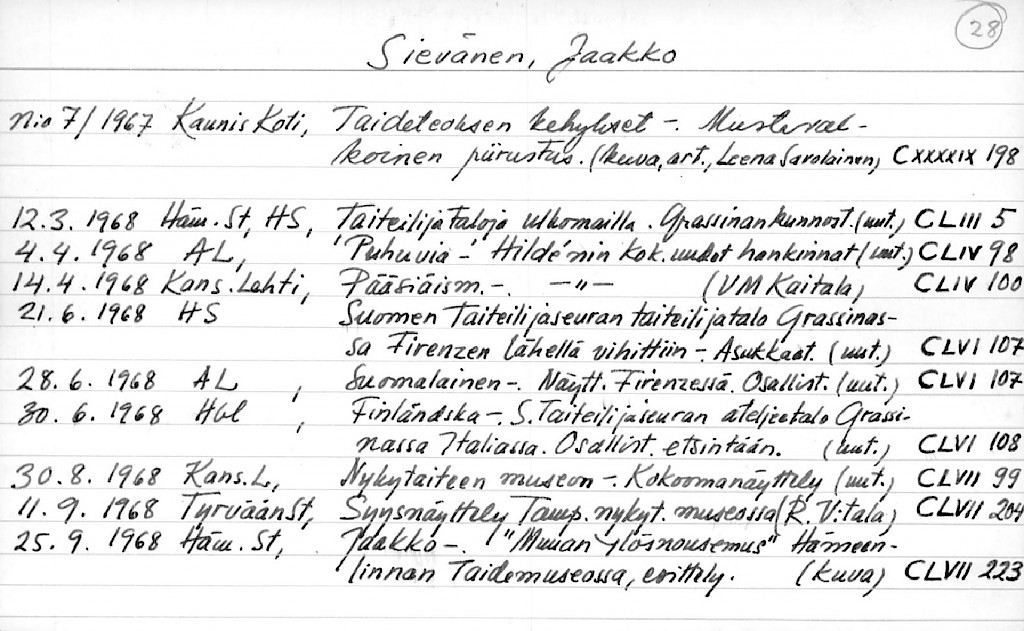 28
Sievänen, Jaakko
n:o 7/1967 Kaunis Koti, Taideteoksen kehykset -. Mustaval-
koinen piirustus. (kuva, art., Leena Savolainen) CXXXXIX 198
12.3. 1968 Häm. St, HS, Taiteilijataloja ulkomailla. Grassinan kunnost. (uut.) CLIII 5
4.4. 1968 AL, 'Puhuvia -' Hildénin kok. uudet hankinnat (uut.) CLIV 98
14.4. 1968 Kans. Lehti, Pääsiäism. -. -"- (VM Kaitala) CLIV 100
21.6. 1968 HS Suomen Taiteilijaseuran taiteilijatalo Grassinas-
sa Firenzen lähellä vihittiin -. Asukkaat. (uut.) CLVI 107
28.6. 1968 AL , Suomalainen -. Näytt. Firenzessä. Osallist. (uut.) CLVI 107
30.6. 1968 Hbl , Finländska -. S. Taiteilijaseuran ateljeetalo Grassi-
nassa Italiassa. Osallist. etsintään. (uut.) CLVI 108
30.8. 1968 Kans. L, Nykytaiteen museon -. Kokoomanäyttely (uut.) CLVII 99
11.9. 1968 TyrväänSt, Syysnäyttely Tamp. nykyt. museossa (R. V:tala) CLVII 204
25.9. 1968 Häm. St, Jaakko -. "Muuan ylösnousemus" Hämeen-
linnan Taidemuseossa, esittely. (kuva) CLVII 223